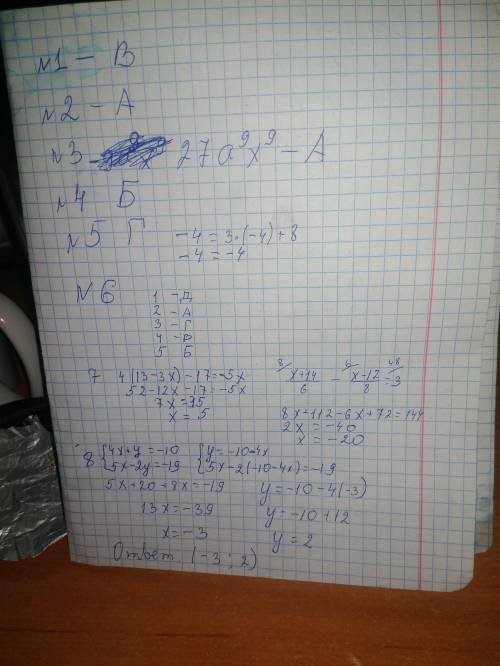 №1 – В
№2 – А
№3 – 27a⁹x⁹ – А
№4 Б
№5 Г -4 = 3·(-4)+8
-4 = -4
№6
1 – Д
2 – А
3 – Г
4 – В
5 Б
7 4(13-3x)-17=-5x
52-12x-17=-5x
7x=35
x=5
8/ x+14/6 - 6/ x-12/8 = 48/ 3
8x+112-6x+72=144
2x=-40
x=-20
8 {4x+y=-10 {y=-10-4x
{5x-2y=-19 {5x-2(-10-4x)=-19
5x+20+8x=-19 y=-10-4(-3)
13x=-39 y=-10+12
x=-3 y=2
Ответ (-3; 2)